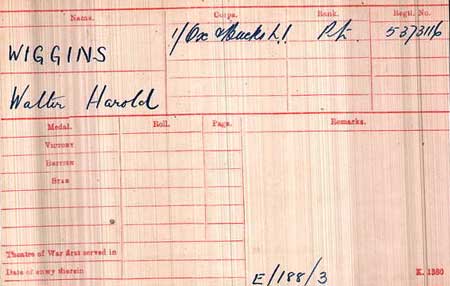 Name. Corps. Rank. Regtl. No.
WIGGINS 1/Ox & Bucks L.I. Pte. 5373116
Walter Harold
Medal. Roll. Page. Remarks.
VICTORY
BRITISH
STAR
Theatre of War first served in
Date of entry therein K. 1380
E/188/3